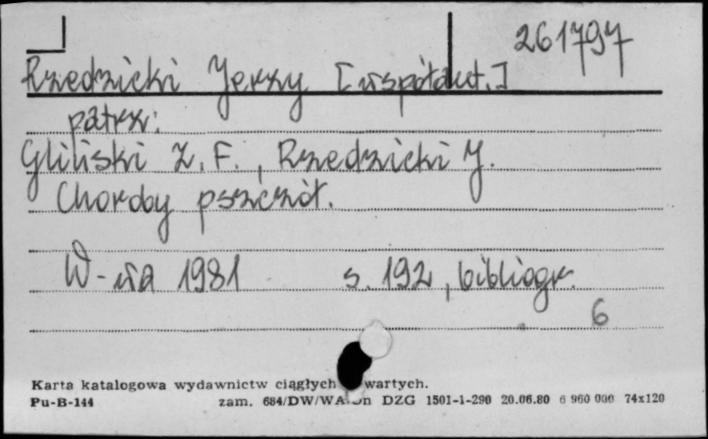 261797
Rzedzicki Jerzy [współaut.]
patrz:
Gliński Z. F., Rzedzicki J.
Choroby pszczół.
W-wa 1981 s. 192, bibliogr.
6
Karta katalogowa wydawnictw ciągłych wartych.
Pu-B-144 zam. 684/DW/WA DZG 1501-1-290 20.06.80 6 960 000 74x120